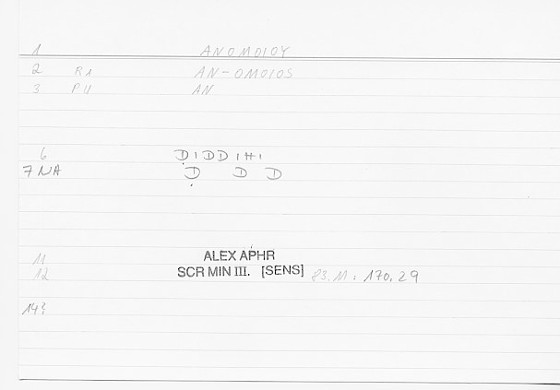 1 ΑΝΟΜΟΙΟΥ
2 R1 ΑΝ-ΟΜΟΙΟS
3 PU ΑΝ
6 DIDDIHI
7 NA D D D
11 ALEX APHR
12 SCR MIN III. [SENS] 83.M. 170.29
14}